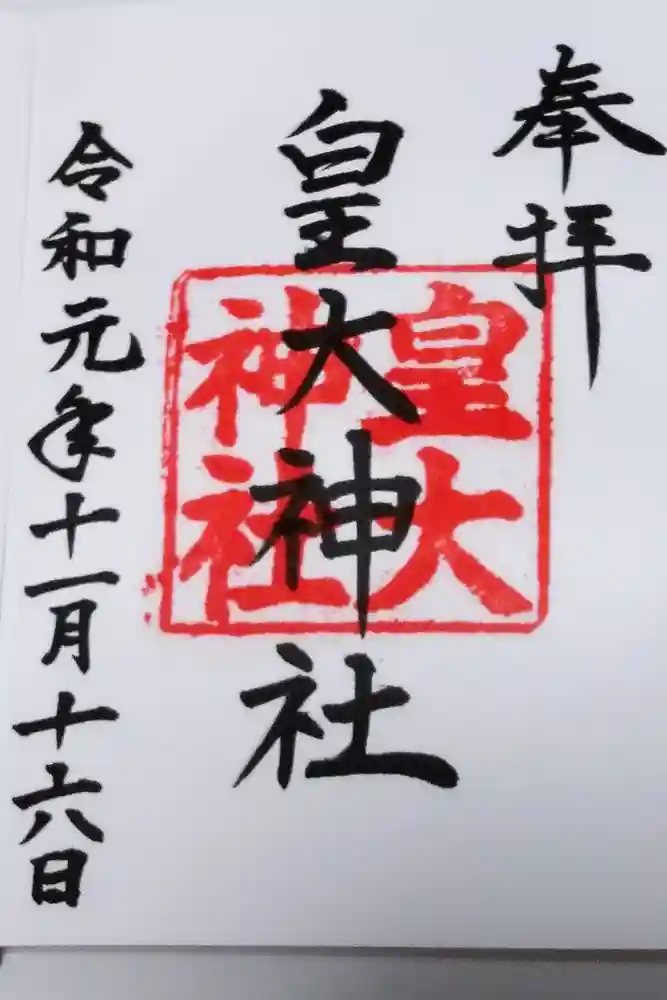 奉拝
皇大神社
皇大
神社
令和元年十一月十六日